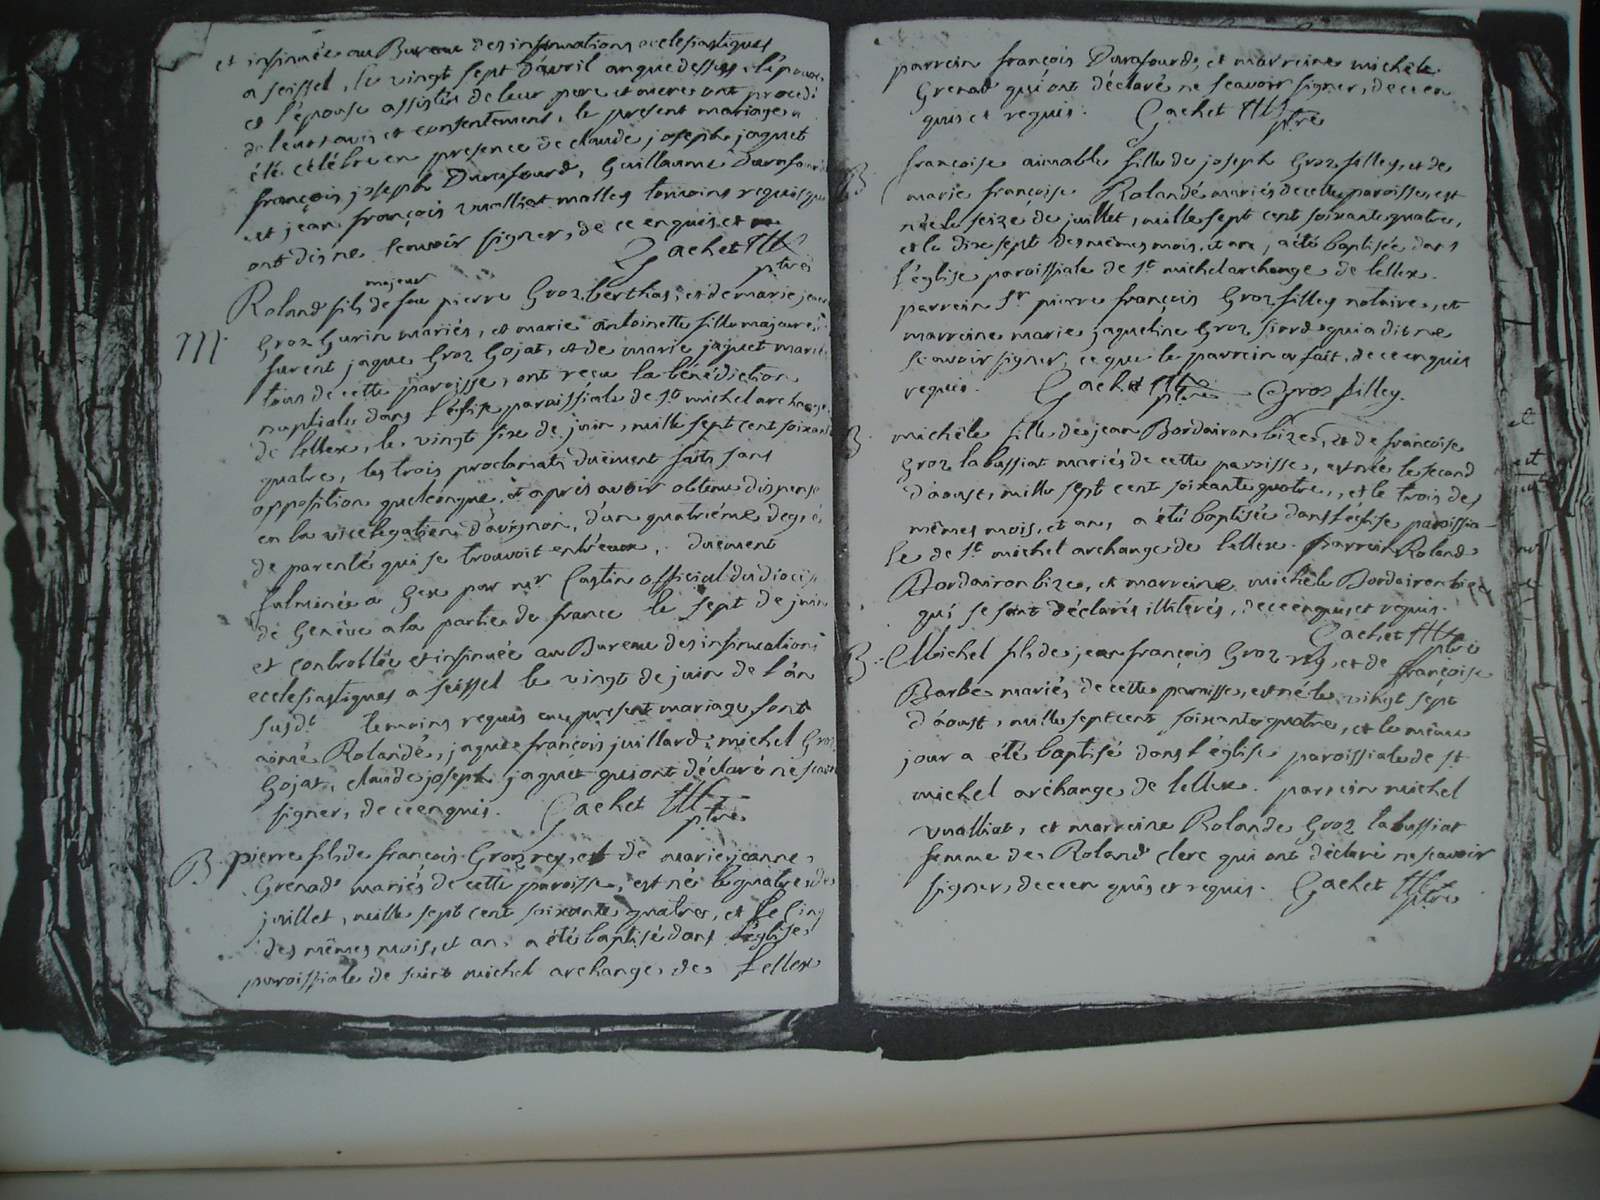 et insinuée au Bureau des insinuations ecclesiastiques
a seissel, le vingt sept d'avril an que dessus, l'epoux
et l'epouse assistés de leur pere et mere ont procedé
de leurs avis et consentement, le present mariage a
été célébré en presence de claude joseph jaquet
françois joseph Durafourd, Guillaume Durafourd
et jean françois vualliet malley temoins requis qui
ont dis ne scavoir signer, de ce enquis, et
Gachet ptre
majeur
Roland fils de feu pierre Groz berthas, et de marie jeanne
M. Groz Gurin mariés, et marie antoinette fille majeure
furent jaque Groz Gojat, et de marie jaquet mariés
tous de cette paroisse, ont reçu la bénédiction
nuptiale dans l'église paroissiale de St michel archange
de lellex, le vingt six de juin, mille sept cent soixante
quatre, les trois proclamats duëment faits sans
opposition quelconque, et après avoir obtenu dispense
en la vicelegation d'avignon, d'un quatriéme degré
de parenté qui se trouvoit entr'eux, duëment
fulminée a Gex par mr Castin official du diocése
de Genève a la partie de france le sept de juin
et controllée et insinuée au Bureau des insinuations
ecclesiastiques a seissel le vingt de juin de l'an
susdt temoins requis au present mariage sont
aimé Rolandé, jaque françois juillard, michel Groz
Gojat, claude joseph jaquet qui ont déclaré ne scavoir
signer, de ce enquis. Gachet ptre
B. pierre fils de françois Groz rey, et de marie jeanne
Grenad mariés de cette paroisse, est né le quatre de
juillet, mille sept cent soixante quatre, et le cinq
des mêmes mois, et an, a été baptisé dans l'église
paroissiale de saint michel archange de Lellex
parrein françois Durafourd, et marreine michèle
Grenad qui ont déclaré ne scavoir signer, de ce en
quis et requis. Gachet ptre
B. françoise aimable fille de joseph Groz filley, et de
marie françoise Rolandé mariés de cette paroisse, est
née le seize de juillet, mille sept cent soixante quatre,
et le dix sept des mêmes mois, et an, a été baptisée dans
l'église paroissiale de St michel archange de lellex.
parrein Sr pierre françois Groz filley notaire, et
marreine marie jaqueline Groz fiord qui a dit ne
scavoir signer, ce que le parrein a fait, de ce enquis
requis. Gachet ptre Groz filley.
B. michèle fille de jean Bordairon bizet, et de françoise
Groz labussiat mariés de cette paroisse, est née le second
d'aoust, mille sept cent soixante quatre, et le trois des
mêmes mois, et an, a été baptisée dans l'église paroissia-
le de St michel archange de lellex. parrein Roland
Bordairon bize, et marreine michèle Bordairon bizet
qui se sont déclarés illiterés, de ce enquis, et requis.
Gachet ptre
B. Michel fils de jean françois Groz rey, et de françoise
Barbe mariés de cette paroisse, est né le vingt sept
d'aoust, mille sept cent soixante quatre, et le même
jour a été baptisé dans l'église paroissiale de St
michel archange de lellex. parrein michel
vualliat, et marreine Rolande Groz labussiat
femme de Roland clerc qui ont déclaré ne scavoir
signer, de ce en quis et requis. Gachet ptre